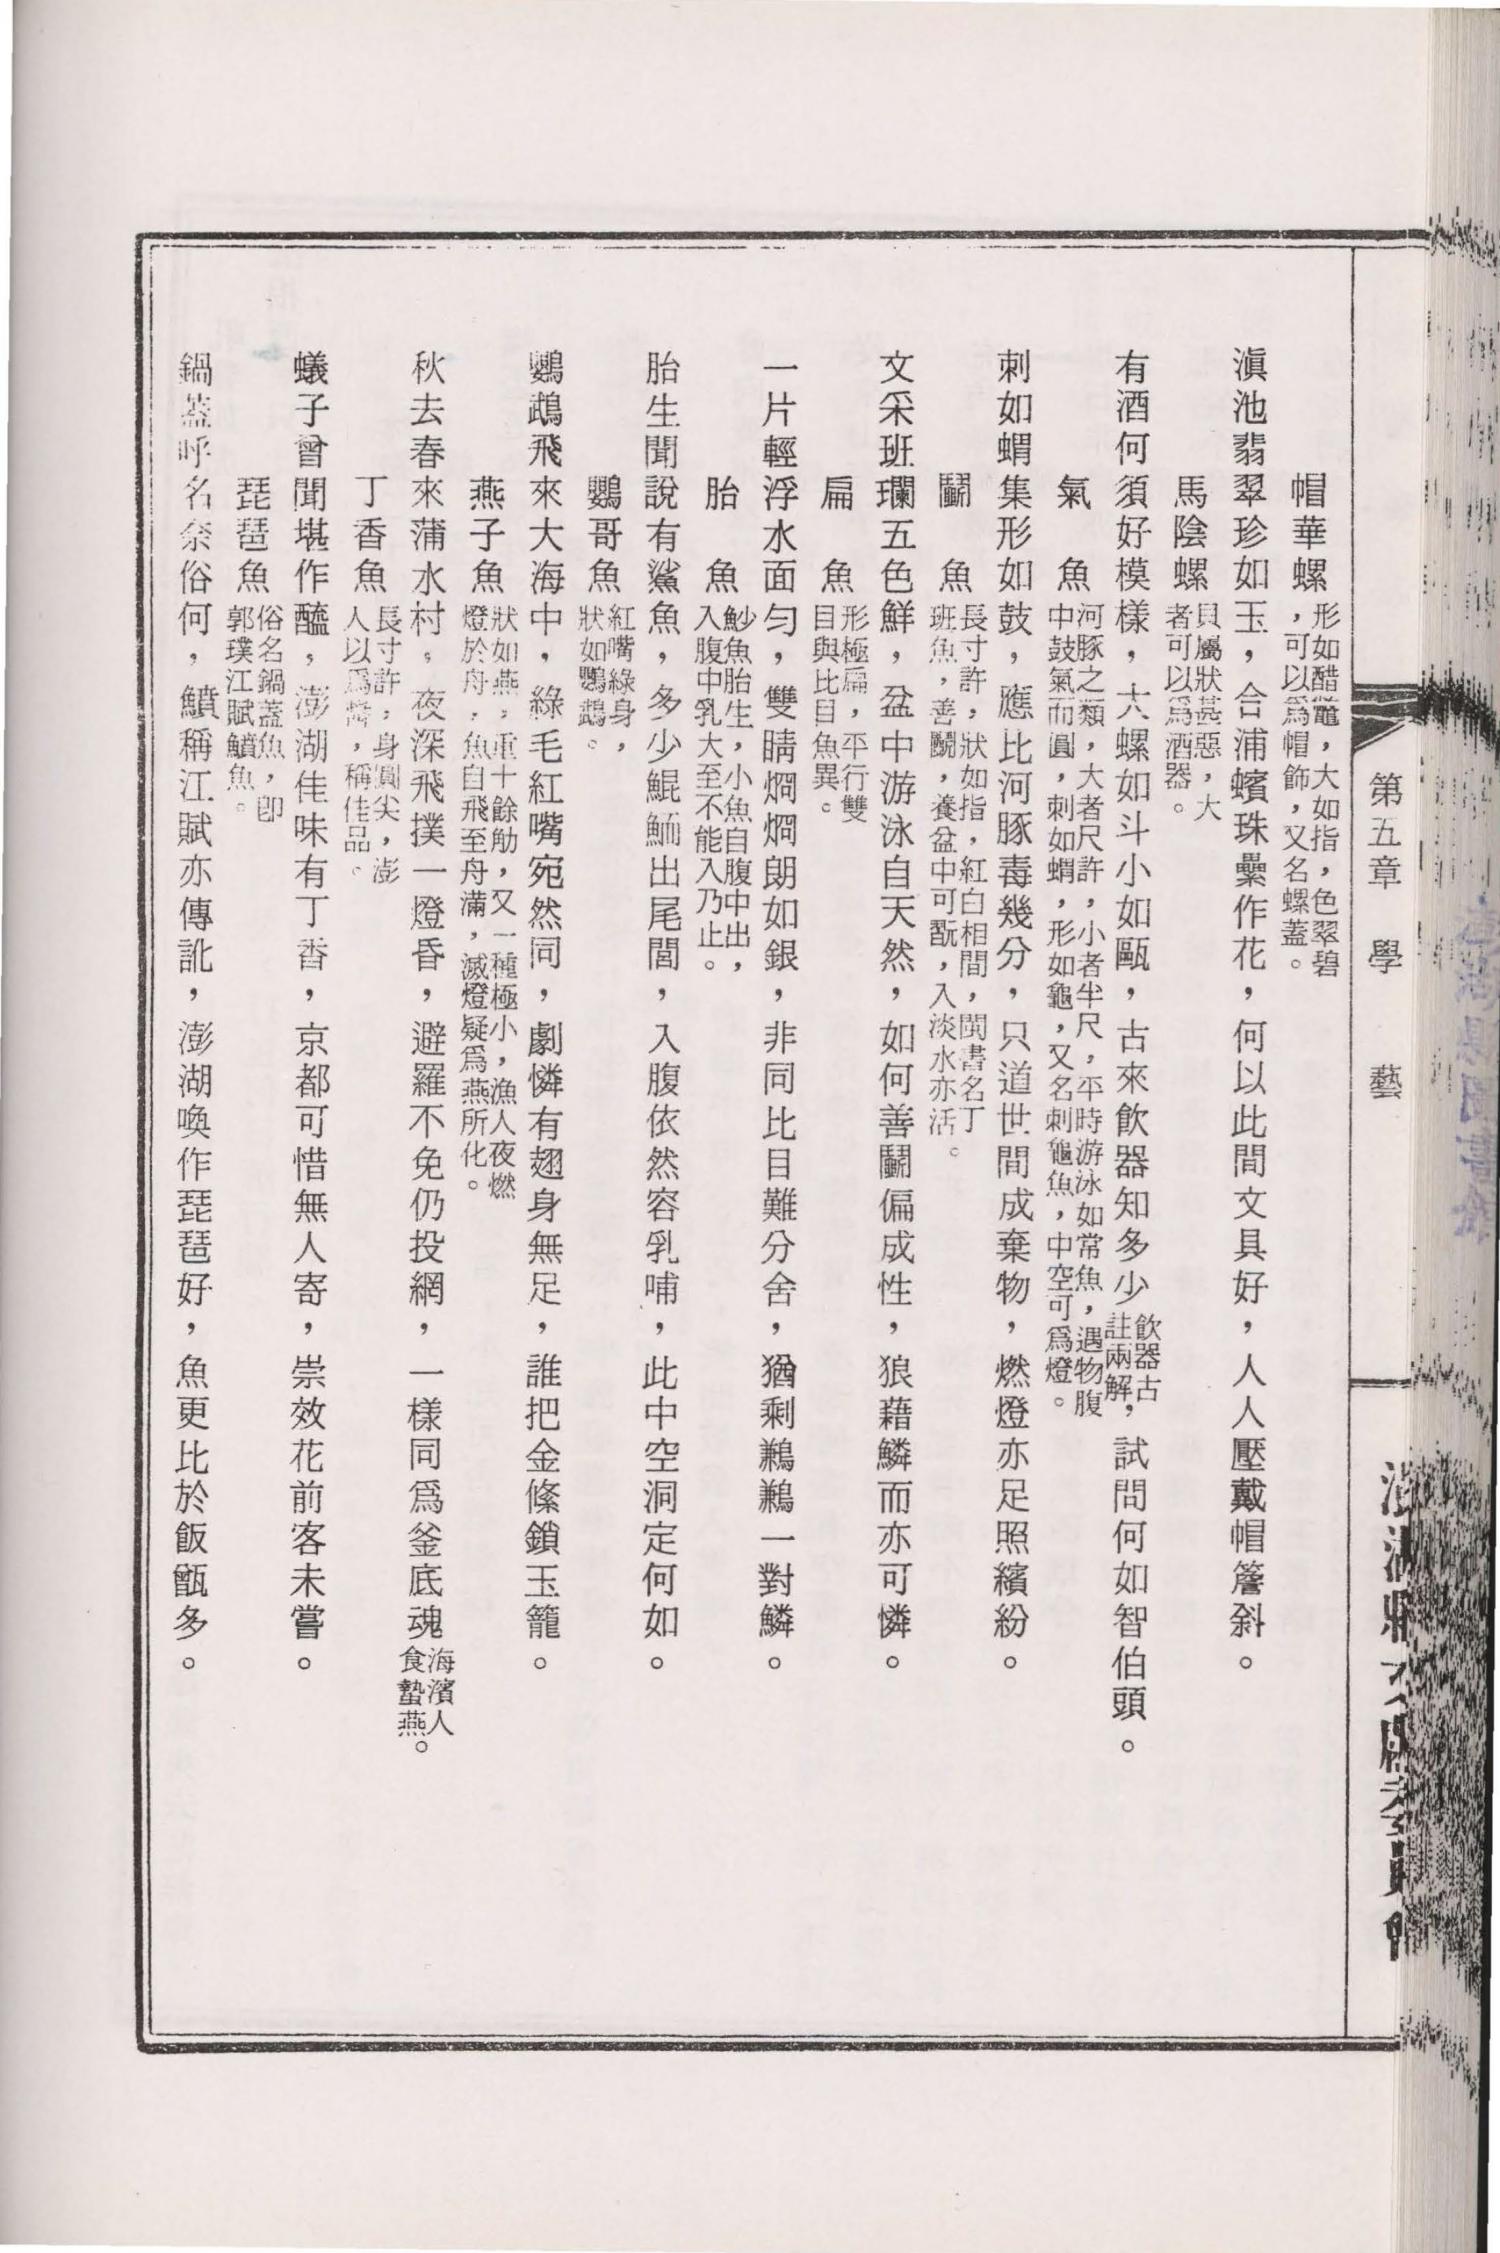 第五章　學　藝
帽華螺形如醋鼈，大如指，色翠碧，可以爲帽飾，又名螺蓋。
滇池翡翠珍如玉，合浦蠙珠曡作花，何以此間文具好，人人壓戴帽簷斜。
馬陰螺貝屬狀甚惡，大者可以爲酒器。
有酒何須好模樣，大螺如斗小如甌，古來飲器知多少飲器古註兩解，試問何如智伯頭。
氣　魚河豚之類，大者尺許，小者半尺，平時游泳如常魚，遇物腹中鼓氣而圓，刺如蝟，形如龜，又名刺龜魚，中空可爲燈。
刺如蝟集形如鼓，應比河豚毒幾分，只道世間成棄物，燃燈亦足照繽紛。
鬭　魚長寸許，狀如指，紅白相間，閩書名丁班魚，善鬭，養盆中可翫，入淡水亦活。
文采班斕五色鮮，盆中游泳自天然，如何善鬭偏成性，狼藉鱗而亦可憐。
扁　魚形極扁，平行雙目與比目魚異。
一片輕浮水面勻，雙睛烱烱朗如銀，非同比目難分舍，猶剩鶼鶼一對鱗。
胎　魚魦魚胎生，小魚自腹中出，入腹中乳大至不能入乃止。
胎生聞說有鯊魚，多少鯤鮞出尾閭，入腹依然容乳哺，此中空洞定何如。
鸚哥魚紅嘴綠身，狀如鸚鵡。
鸚鵡飛來大海中，綠毛紅嘴宛然同，劇憐有翅身無足，誰把金絛鎖玉籠。
燕子魚狀如燕，重十餘觔，又一種極小，漁人夜燃燈於舟，魚自飛至舟滿，滅燈疑爲燕所化。
秋去春來蒲水村，夜深飛撲一燈昏，避羅不免仍投網，一樣同爲釜底魂海濱人食蟄燕。
丁香魚長寸許，身圓尖，澎人以爲，稱佳品。
蟻子曾聞堪作醢，澎湖佳味有丁香，京都可惜無人寄，崇效花前客未嘗。
琵琶魚俗名鍋蓋魚，卽郭璞江賦鱝魚。
鍋蓋呼名奈俗何，鱝稱江賦亦傳訛，澎湖喚作琵琶好，魚更比於飯甑多。